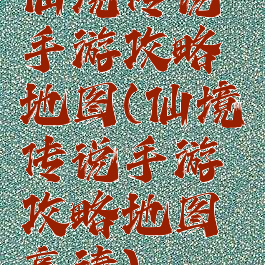 仙境传说
手游攻略
地图(仙境
传说手游
攻略地图
高清)